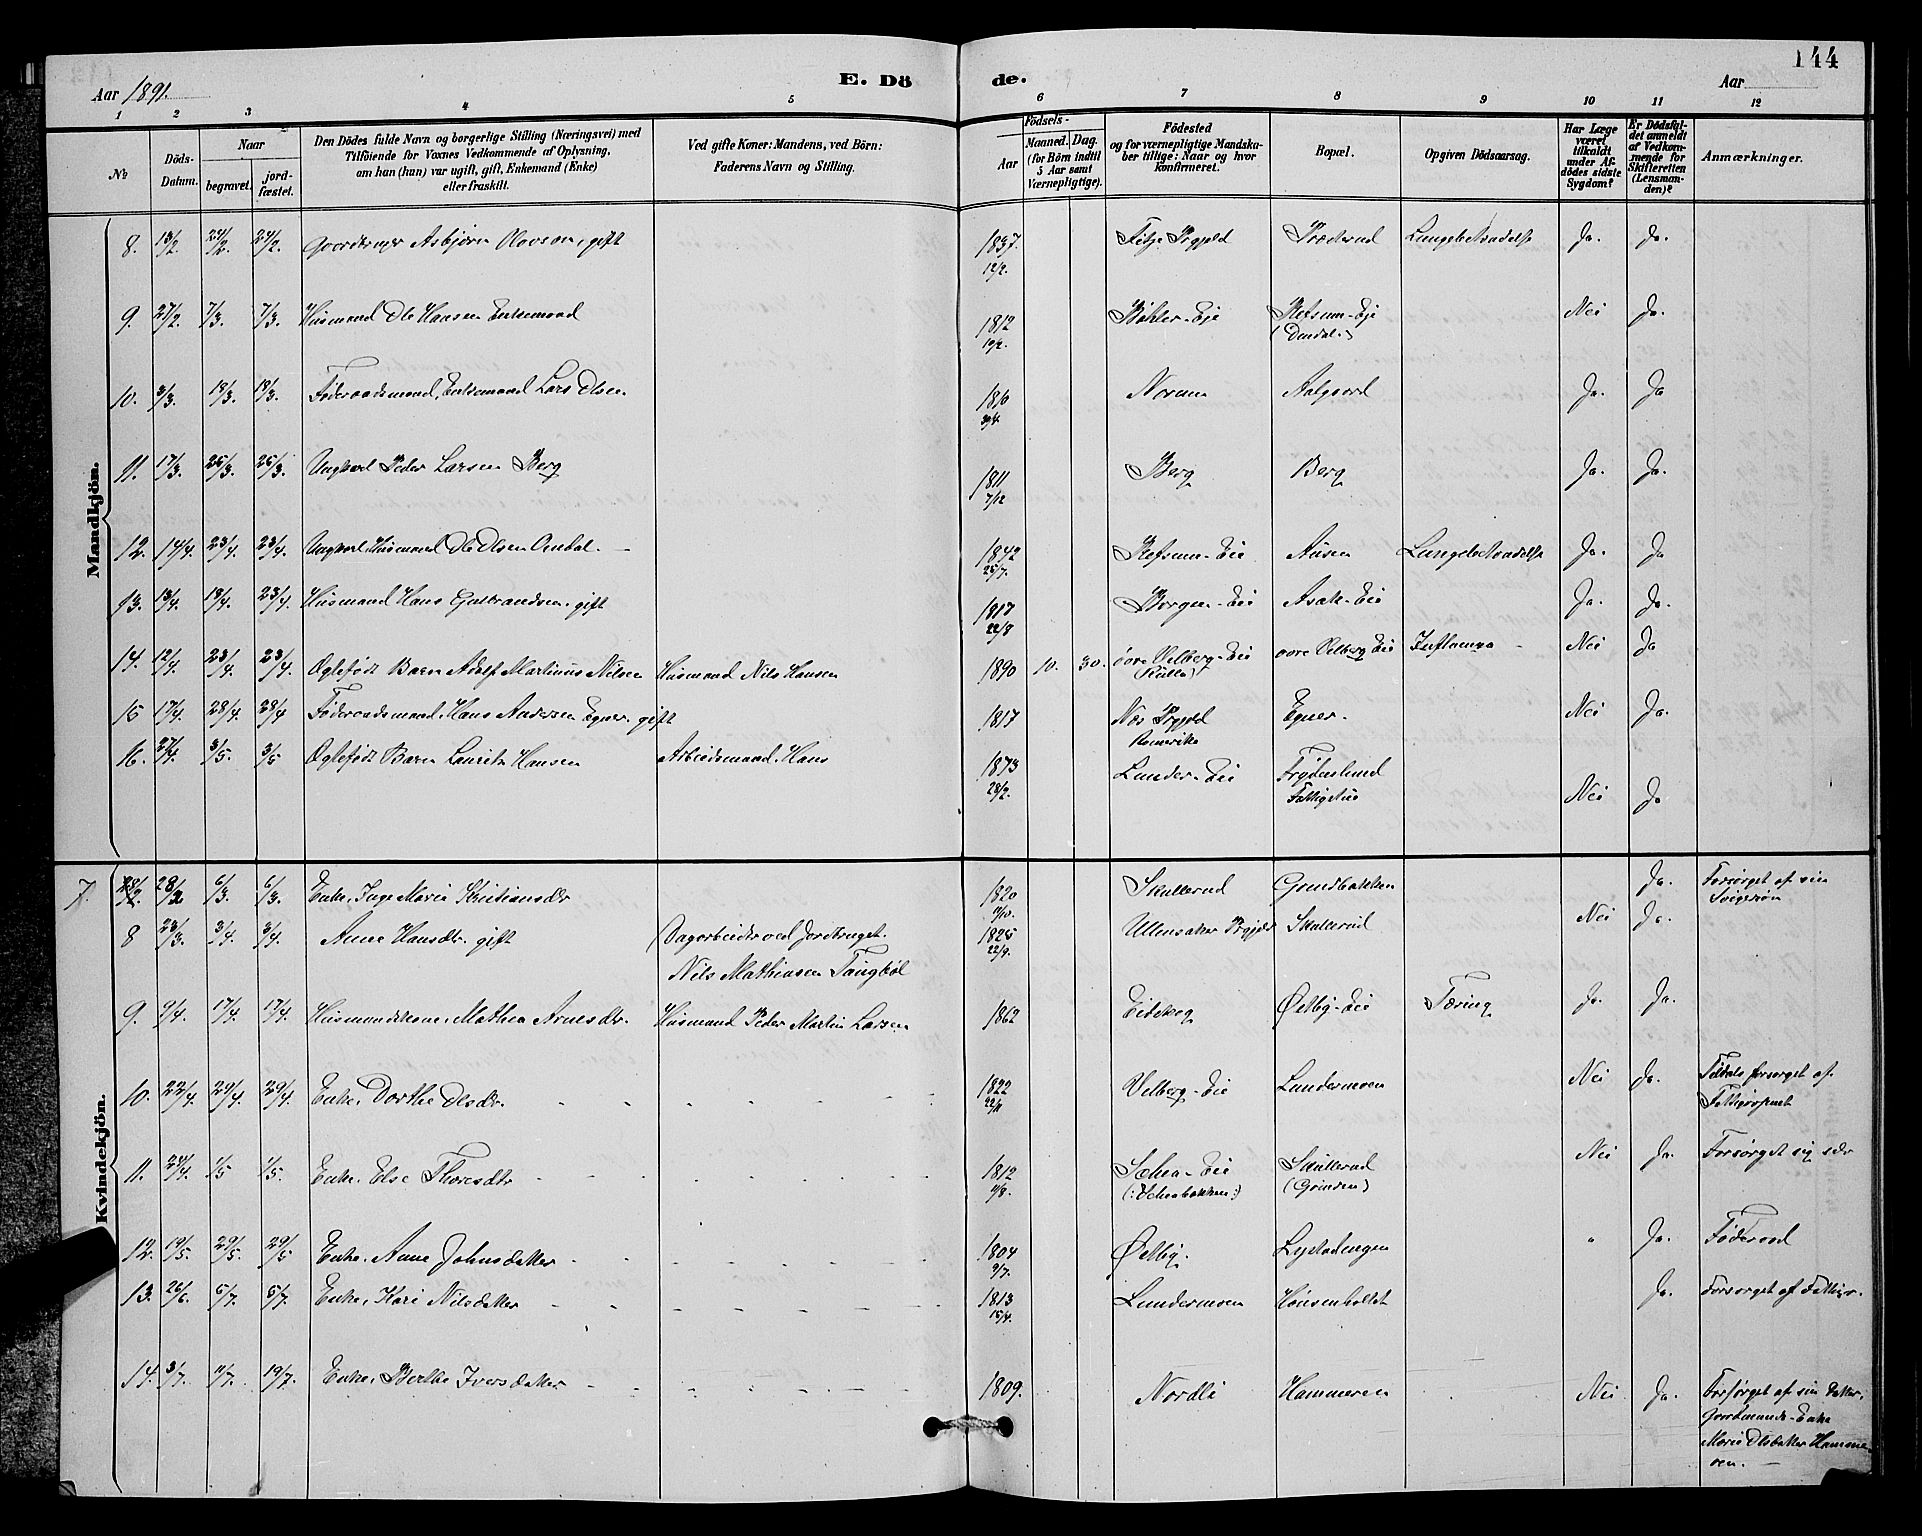 144
Aar 1891.
E. Dö de.
Aar
1 2 3 4 5 6 7 8 9 10 11 12
№
Döds-Datum.
Naar
begravet.
jord-fæstet.
Den Dödes fulde Navn og borgerlige Stilling (Næringsvei) med
Tilföiende for Voxnes Vedkommende af Oplysning,
om han (hun) var ugift, gift, Enkemand (Enke)
eller fraskilt.
Ved gifte Koner: Mandens, ved Börn:
Faderens Navn og Stilling.
Födsels-
Aar
Maaned. Dag.
(for Börn indtil
5 Aar samt
Værnepligtige).
Födested
og for værnepligtige Mandska-
ber tillige: Naar og hvor
konfirmeret.
Bopæl.
Opgiven Dödsaarsag.
Har Læge
været
tilkaldt
under Af-
dödes sidste
Sygdom?
Er Dödsfal-
det anmeldt
af Vedkom-
mende for
Skifteretten
(Lensman-
den)?
Anmærkninger.
Mandkjön.
8. 13/2 24/2 24/2. Asbjörn Olovsen, gift 1837 12/2. Lungebetændelse Ja. Ja.
9. 27/2. 7/3. 7/3. Husmand Ole Hansen Enkemand 1812 Böhler-Eje Refsum-Eje Nei Ja.
10. 3/3. 18/3. 18/3. Föderaadsmand, Enkemand Lars Olsen. 1816 Norum Aalgaard Ja. Ja
11. 17/3. 25/3. 25/3. Ungkarl Peder Larsen Berg 1811 7/12 Berg Berg Ja. Ja.
12. 14/4. 23/4. 23/4. Ungkarl, Husmand Ole Olsen 1842 25/7. Refsum-Eie Ausen Lungebetændelse Ja. Ja
13. 13/4. 18/4. 23/4. Husmand Hans Gulbrandsen, gift 1817 22/8 Borgen-Eie Asak-Eie Ja. Ja.
14. 12/4. 23/4. 23/4. Ægtefødt Barn Adolf Martinius Nilsen Husmand Nils Hansen 1890 10. 30. övre Velberg-Eie övre Velberg Eie Influenza Nei Ja
15 17/4. 28/4. 28/4 Föderaadsmand, Hans Andersen Egner. gift 1817 Næs Prgjeld Romerike Egner. Nei Ja.
16. 27/4. 3/5. 3/5 Ægtefødt Barn Laurits Hansen Arbeidsmand, Hans 1873 28/2. Lunder-Eie Frydenlund Fattighus Nei Ja
Kvindekjön.
7. 28/2 6/3. 6/3. Enke, Inge Marie Kristiansdr 1820 Skullerud Grindbakken Ja. Forsørget af sin Svigersøn
8 23/3. 3/4. 3/4. Anne Hansdr. gift Dagarbeider ved Jordbruget. Nils Mathiasen Tangböl 1825 22/9. Ullensaker Skullerud Nei Ja.
9. 9/4. 17/4. 17/4. Husmandskone, Mathea Arnesdr. Husmand Peder Martin Larsen 1862 Eidskog Østby-Eie Tæring Ja. Ja.
10. 22/4. 29/4. 29/4. Enke, Dorthe Olsdr. 1822 22/11 Velberg-Eie Lundermoen Nei Ja. Tildels forsørget af Fattigvæsenet
11. 24/4. 1/5 1/5. Enke, Else Thoresdtr 1812 Skullerud (Grinden) Nei Ja. Forsørget sig selv
12. 19/5. 29/5. 29/5 Enke, Anne Johnsdatter 1804 9/7. Østby. " Ja. Föderaad
13. 26/6. 5/7. 5/7. Enke, Kari Nilsdatter 1813 15/4. Lundermoen Hönsenholtet Ja. Forsørget af Fattigv.
14. 3/7. 11/7. 19/7. Enke, Berthe Iversdatter 1809. Nordli Hammeren Nei Ja. Forsørget af sin Datter,
Gaardmands-Enke
Marie Olsdatter Hamme-
ren.